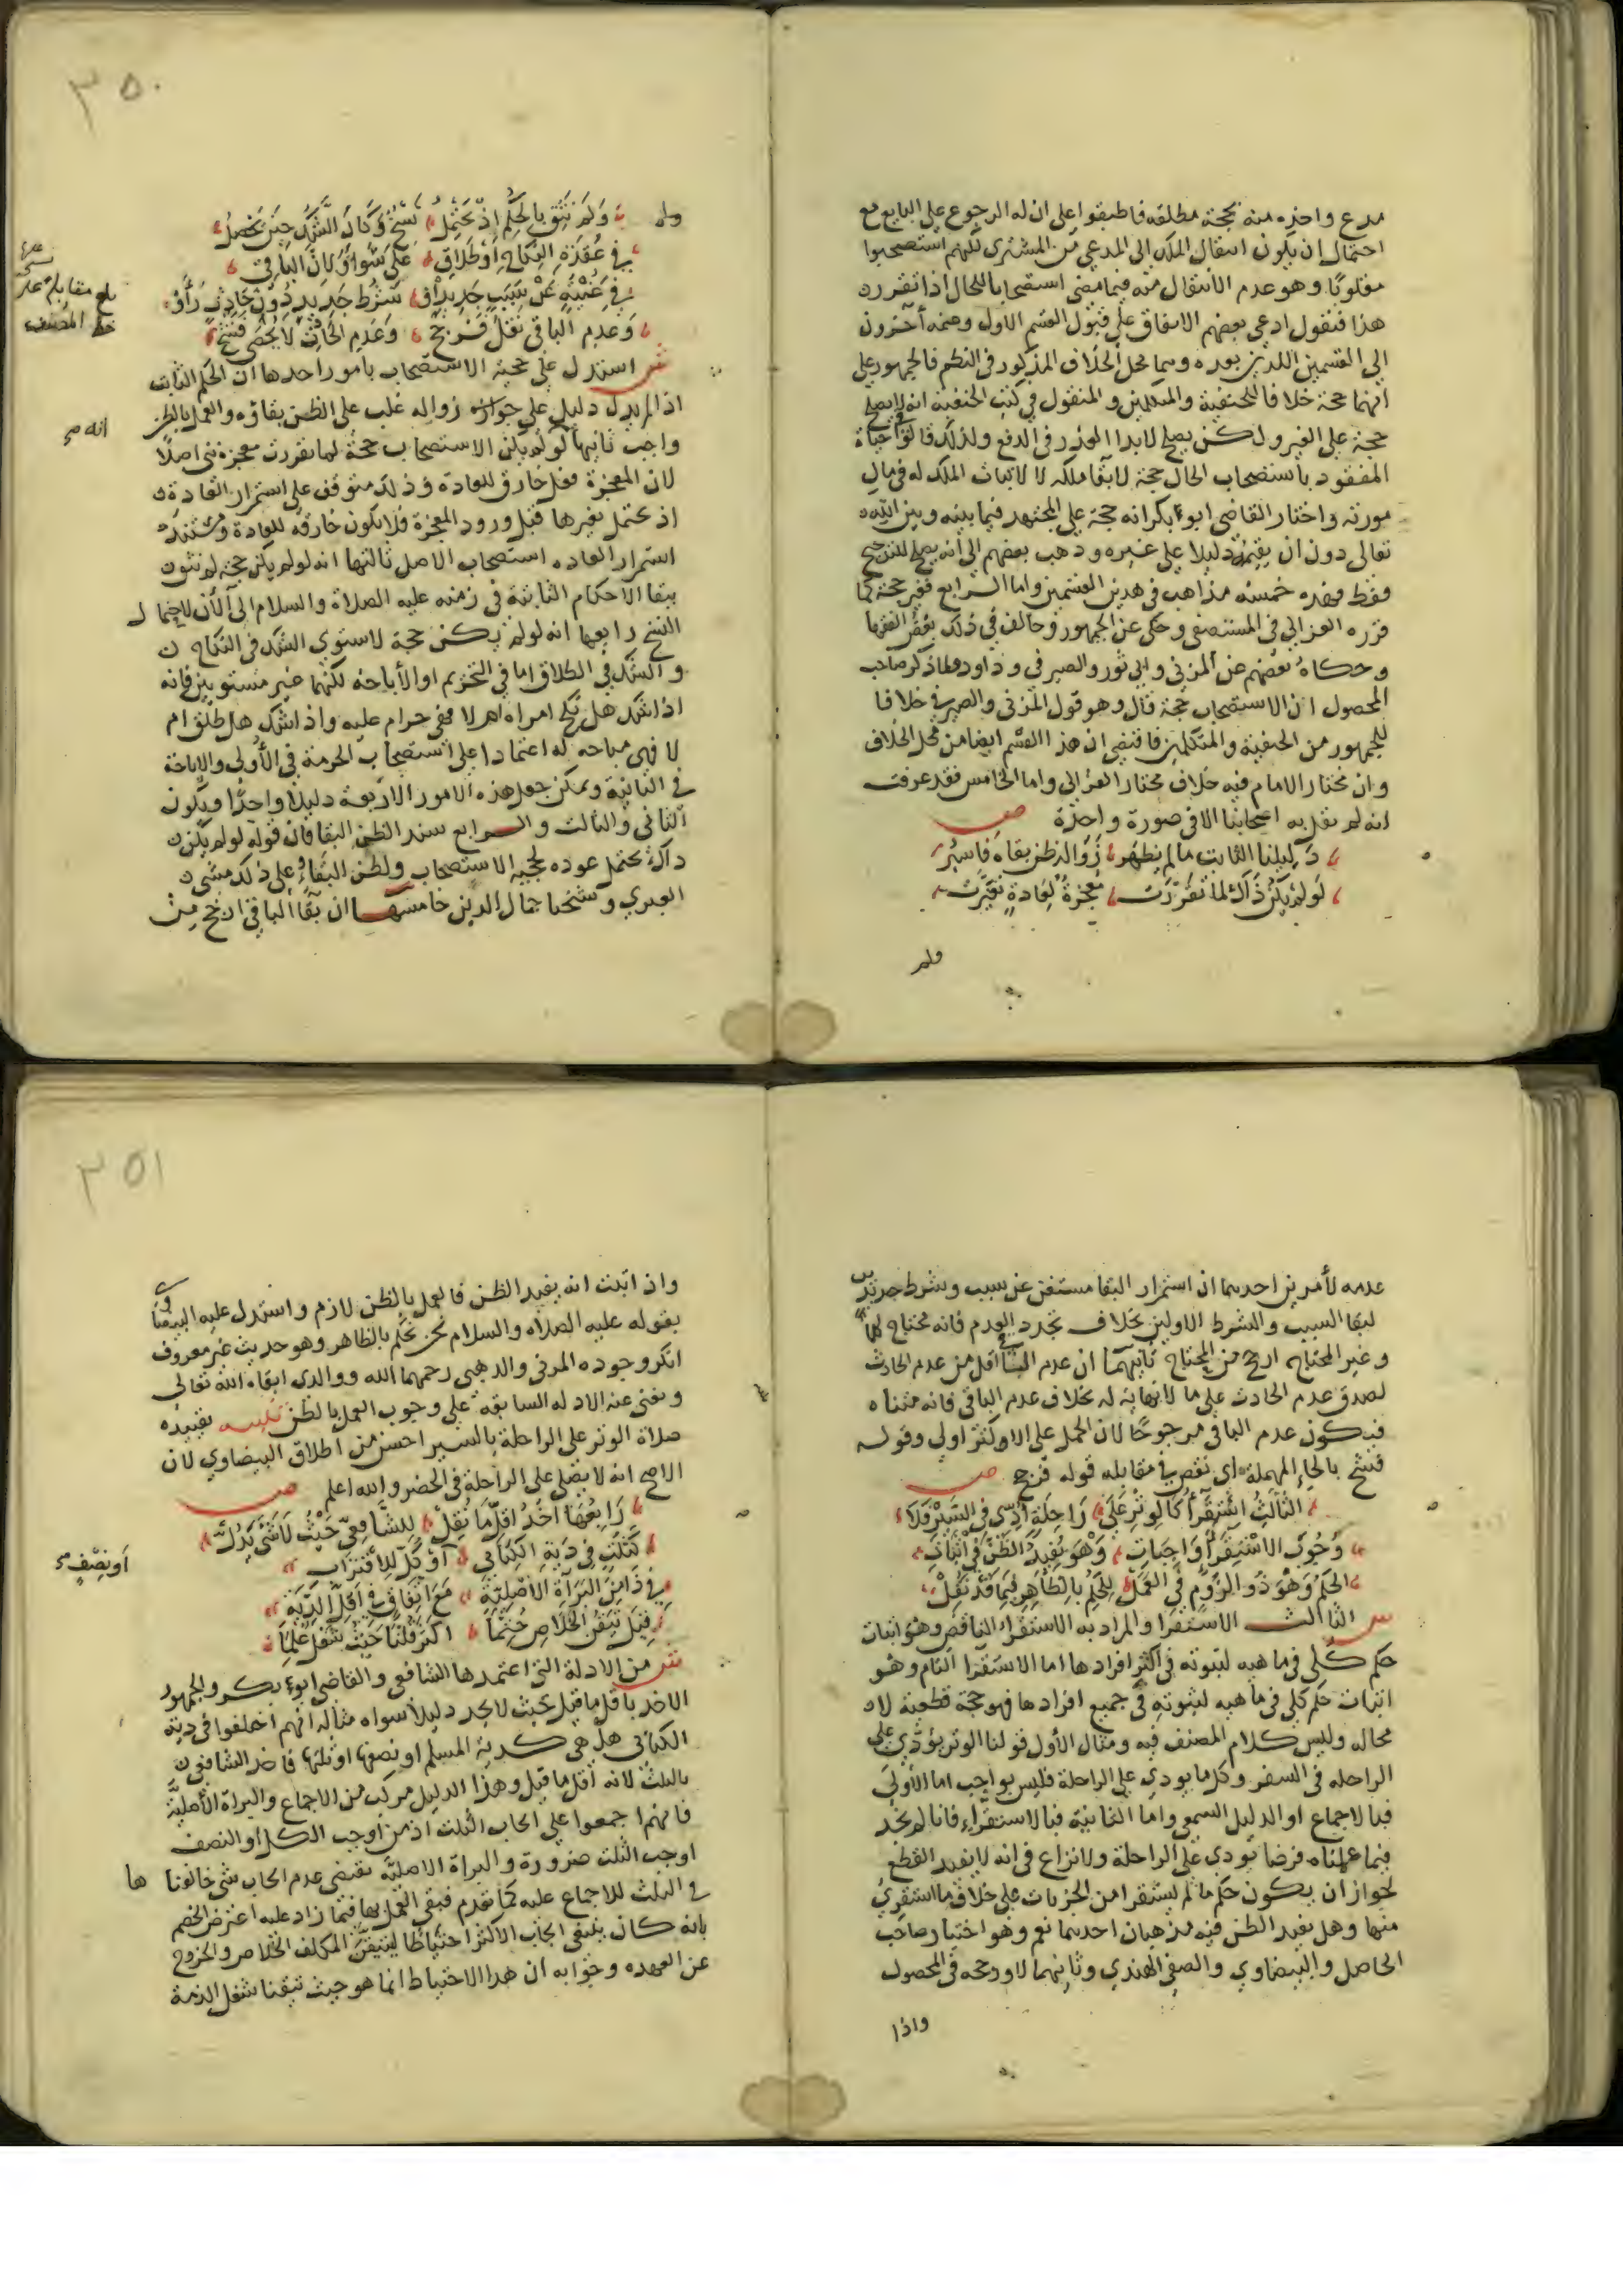 مدع واخذه منه بحجة مطلقه فاطبقوا على ان له الرجوع على البايع مع
احتمال ان يكون انتقال الملك الى المدعي من المشترى لكنهم استصحبوا
مقلوبًا وهو عدم الانتقال منه فيما مضى استصحابا للحال اذا تقرر
هذا فنقول ادعى بعضهم الاتفاق على قبول القسم الاول وضم آخرون
الى القسمين اللذين بعده وهما محل الخلاف المذكور في النظم فالجمهور على
انهما حجة خلافا للحنفية والمتكلمين والمنقول في كتب الحنفية انه لا يصلح
حجة على الغير ولكن يصلح لابدا العذر في الدفع ولذلك قالوا حياة
المفقود باستصحاب الحال حجة لابقا ملكه لا لاثبات الملك له في مال
مورثه واختار القاضي ابو بكر انه حجة على المجتهد فيما بينه وبين الله
تعالى دون ان يقيمه دليلا على غيره وذهب بعضهم الى انه يصلح للترجيح
فقط فهذه خمسة مذاهب في هذين القسمين واما الرابع فغير حجة كما
قرره الغزالي في المستصفى وحكى عن الجمهور وخالف في ذلك بعض الفقها
وحكاه بعضهم عن المزني وابي ثور والصيرفي وداود ولما ذكر صاحب
المحصول ان الاستصحاب حجة قال وهو قول المزني والصيرفي خلافا
للجمهور من الحنفية والمتكلمين فاقتضى ان هذا القسم ايضا من محل الخلاف
وان مختار الامام فيه خلاف مختار الغزالي واما الخامس فقد عرفت
انه لم يقل به اصحابنا الا في صورة واحدة ص
دليلنا الثابت ما لم يظهر زوال نظن بقاه فاسبر
لو لم يكن ذاك لما تقررت معجزة لعادة تغيرت
ولم
٣٥٠
وَلَمْ نَثِق بِالحُكْمِ اِذ يَحْتَمِلُ نَسْخٌ وَكَانَ الشَّكُّ حِينَ يَحْصُلُ
فِي عُقْدَةِ النِّكَاحِ اَوْ طَلَاقِ عَلَى سَوَاءٍ وَلِانَّ البَاقِي
فِي غُنْيَةٍ عَنْ سَبَبٍ جَدِيدٍ اَوْ شَرْطٍ جَدِيدٍ دُوْنَ حَادِثٍ رَاَوْ
وَعَدَم البَاقِي نَقْلٌ فَرَجَحْ وَعَدَمِ الحَادِثِ لَا يُحْصَى فَشَحْ
بلغ مقابلة على
خط المصنف
ش استدل على حجية الاستصحاب بامور احدها ان الحكم الثابت
اذا لم يدل دليل على جواز زواله غلب على الظن بقاؤه والعمل بالظن
انه ص
واجب ثانيها لو لم يكن الاستصحاب حجة لما تقررت معجزة نبي اصلا
لان المعجزة فعل خارق للعادة وذلك متوقف على استمرار العادة
اذ يحتمل تغيرها قبل ورود المعجزة فلا يكون خارقة للعادة ومستند
استمرار العاده استصحاب الاصل ثالثها انه لو لم يكن حجة لم نثق
ببقا الاحكام الثابتة في زمنه عليه الصلاة والسلام الى الان لاحتمال
النسخ رابعها انه لو لم يكن حجة لاستوى الشك في النكاح
والشك في الطلاق اما في التحريم او الاباحة لكنهما غير مستويين فانه
اذا شك هل نكح امراه ام لا فهي حرام عليه واذا شك هل طلق ام
لا فهي مباحه له اعتمادا على استصحاب الحرمة في الأولى والاباحة
في الثانية ويمكن جعل هذه الامور الاربعة دليلا واحدًا ويكون
الثاني والثالث والرابع سند الظن البقا فان قوله لو لم يكن
ذاك يحتمل عوده لحجية الاستصحاب ولظن البقاء وعلى ذلك مشى
العبري وشيخنا جمال الدين خامسها ان بقا الباقي ارجح من
عدمه لأمرين احدهما ان استمرار البقا مستغن عن سبب وشرط جديدين
لبقا السبب والشرط الاولين بخلاف تجدد العدم فانه محتاج لهما
وغير المحتاج ارجح من المحتاج ثانيهما ان عدم الباقي اقل من عدم الحادث
لصدق عدم الحادث على ما لا نهاية له بخلاف عدم الباقي فانه متناه
فيكون عدم الباقي مرجوحًا لان الحمل على الاكثر اولى وقوله
فشح بالحاء المهملة اي نقص في مقابله قوله فرجح ص
الثالث استقرا كالوتر على راحلة ادي في السير فلا
وجوب لاستقراء واجبات وهو يفيد الظن في اثبات
الحكم وهو ذو الزوم في العمل للحكم بالظاهر فيما قد نقل
ش الثالث الاستقرا والمراد به الاستقراء الناقص وهو اثبات
حكم كلي في ماهيه لثبوته في اكثر افرادها اما الاستقرا التام وهو
اثبات حكم كلي في ماهيه لثبوته في جميع افرادها فهو حجة قطعية لا
محاله وليس كلام المصنف فيه ومثال الأول قولنا الوتر يؤدي على
الراحله في السفر وكل ما يودي على الراحلة فليس بواجب اما الأولى
فبالاجماع او الدليل السمعي واما الثانية فبالاستقراء فانا لم نجد
فيما علمناه فرضا يودي على الراحلة ولا نزاع في انه لا يفيد القطع
لجواز ان يكون حكم ما لم يستقرا من الجزيات على خلاف ما استقرئ
منها وهل يفيد الظن فيه مذهبان احدهما نعم وهو اختيار صاحب
الحاصل والبيضاوي والصفي الهندي وثانيهما لا ورجحه في المحصول
واذا
٣٥١
واذ اثبت انه يفيد الظن فالعمل بالظن لازم واستدل عليه البيضاوي
بقوله عليه الصلاه والسلام نحن نحكم بالظاهر وهو حديث غير معروف
انكر وجوده المزي والذهبي رحمهما الله ووالدي ابقاه الله تعالى
ويغني عنه الادله السابقة على وجوب العمل بالظن تنبيه تقييده
صلاة الوتر على الراحلة بالسير احسن من اطلاق البيضاوي لان
الاصح انه لا يصلي على الراحلة في الحضر والله اعلم ص
رابعها اخذ اقل ما نقل للشافعي حيث لا شي يدل
كثلث في دية الكتابي او كل للاقتراب
اونصف
في ذا من البراة الاصلية مع اتفاق في اقل الدية
قيل تيقن الخلاص حتما اكثر قلنا حيث شغل علما
ش من الادلة التي اعتمدها الشافعي والقاضي ابو بكر والجمهور
الاخذ باقل ما قيل بحيث لا يجد دليلا سواه مثاله انهم اختلفوا في دية
الكتابي هل هي كدية المسلم او نصفها او ثلثها فاخذ الشافعي
بالثلث لانه اقل ما قيل وهذا الدليل مركب من الاجماع والبراة الأصلية
فانهم اجمعوا على ايجاب الثلث اذ من اوجب الكل أو النصف
اوجب الثلث ضرورة والبراة الاصلية تقتضي عدم ايجاب شي خالفناها
في الثلث للاجماع عليه كما تقدم فبقي العمل بها فيما زاد عليه اعترض الخصم
بانه كان ينبغي ايجاب الاكثر احتياطا ليتيقن المكلف الخلاص والخروج
عن العهده وجوابه ان هذا الاحتياط انما هو حيث تيقنا شغل الذمة